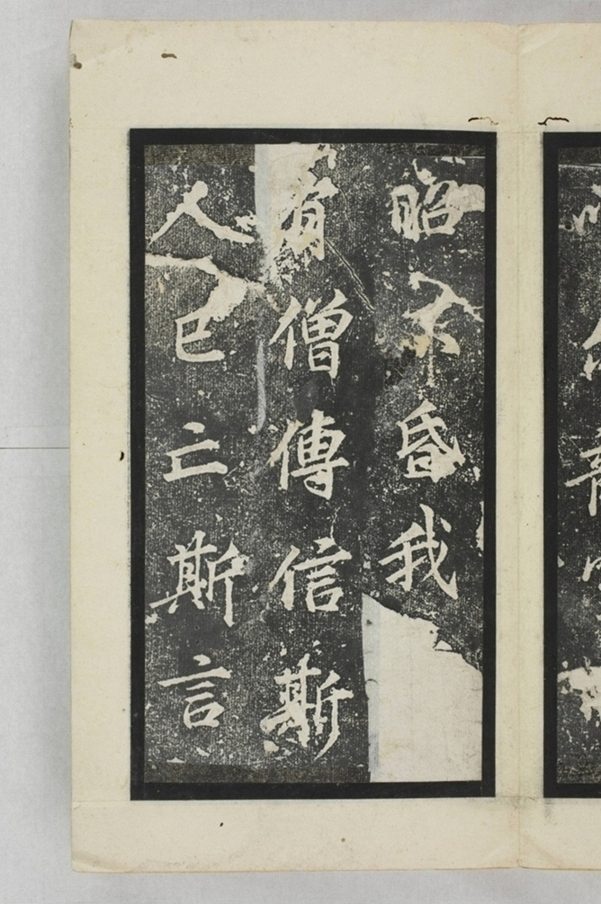 昭不昏我
有僧傳信斯
人已亡斯言